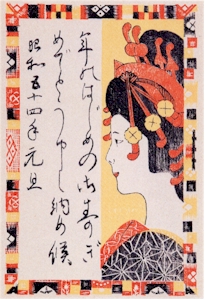 年のはじめの御寿ぎ
めでたくうけし納め候
昭和五十四年元旦